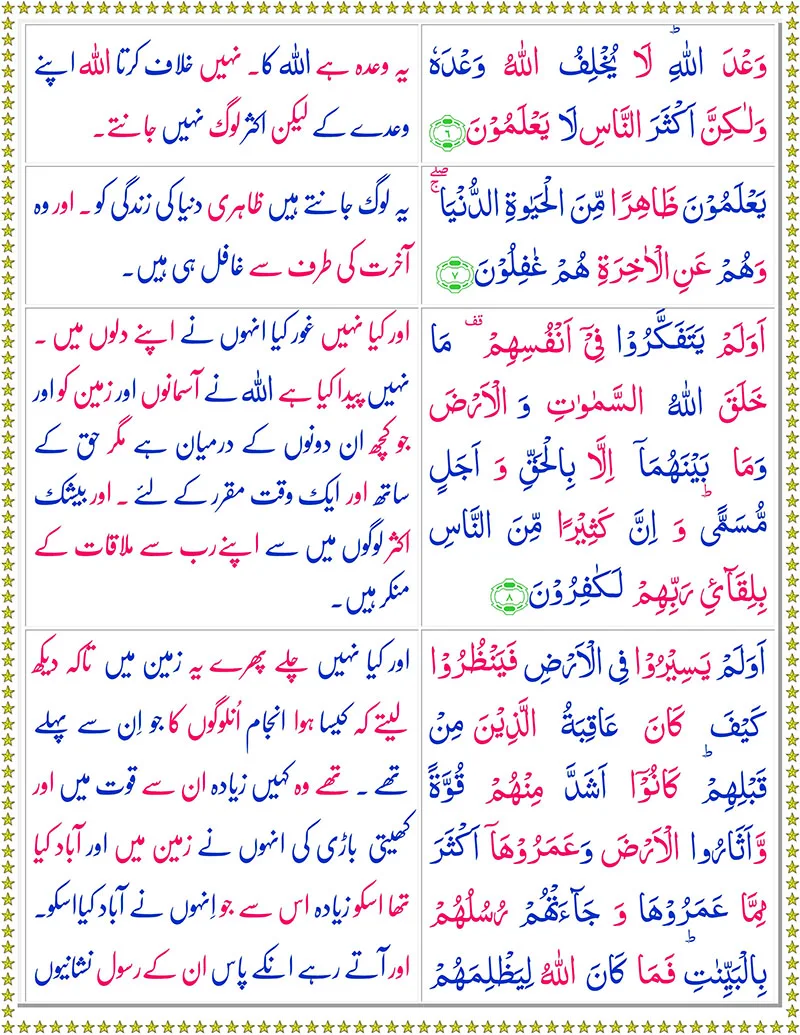 وَعْدَ اللّٰهِ ؕ لَا يُخْلِفُ اللّٰهُ وَعْدَهٗ
وَلٰـكِنَّ اَكْثَرَ النَّاسِ لَا يَعْلَمُوْنَ ﴿۶﴾
یہ وعدہ ہے اللہ کا۔ نہیں خلاف کرتا اللہ اپنے
وعدے کے لیکن اکثر لوگ نہیں جانتے۔
يَعْلَمُوْنَ ظَاهِرًا مِّنَ الْحَيٰوةِ الدُّنْيَا ۖۚ
وَهُمْ عَنِ الْاٰخِرَةِ هُمْ غٰفِلُوْنَ ﴿۷﴾
یہ لوگ جانتے ہیں ظاہری دنیا کی زندگی کو۔ اور وہ
آخرت کی طرف سے غافل ہی ہیں۔
اَوَلَمْ يَتَفَكَّرُوْا فِىْۤ اَنْفُسِهِمْ قف مَا
خَلَقَ اللّٰهُ السَّمٰوٰتِ وَ الْاَرْضَ
وَمَا بَيْنَهُمَاۤ اِلَّا بِالْحَقِّ وَ اَجَلٍ
مُّسَمًّى ؕ وَ اِنَّ كَثِيْرًا مِّنَ النَّاسِ
بِلِقَآئِ رَبِّهِمْ لَـكٰفِرُوْنَ ﴿۸﴾
اور کیا نہیں غور کیا انہوں نے اپنے دلوں میں۔
نہیں پیدا کیا ہے اللہ نے آسمانوں اور زمین کو اور
جو کچھ ان دونوں کے درمیان ہے مگر حق کے
ساتھ اور ایک وقت مقرر کے لئے۔ اور بیشک
اکثر لوگوں میں سے اپنے رب سے ملاقات کے
منکر ہیں۔
اَوَلَمْ يَسِيْرُوْا فِى الْاَرْضِ فَيَنْظُرُوْا
كَيْفَ كَانَ عَاقِبَةُ الَّذِيْنَ مِنْ
قَبْلِهِمْ ؕ كَانُوْۤا اَشَدَّ مِنْهُمْ قُوَّةً
وَّاَثَارُوا الْاَرْضَ وَعَمَرُوْهَاۤ اَكْثَرَ
مِمَّا عَمَرُوْهَا وَ جَآءَتْهُمْ رُسُلُهُمْ
بِالْبَيِّنٰتِ ؕ فَمَا كَانَ اللّٰهُ لِيَظْلِمَهُمْ
اور کیا نہیں چلے پھرے یہ زمین میں تاکہ دیکھ
لیتے کہ کیسا ہوا انجام اُنلوگوں کا جو اِن سے پہلے
تھے۔ تھے وہ کہیں زیادہ ان سے قوت میں اور
کھیتی باڑی کی انہوں نے زمین میں اور آباد کیا
تھا اسکو زیادہ اس سے جو اِنہوں نے آباد کیا اسکو۔
اور آتے رہے انکے پاس ان کے رسول نشانیوں